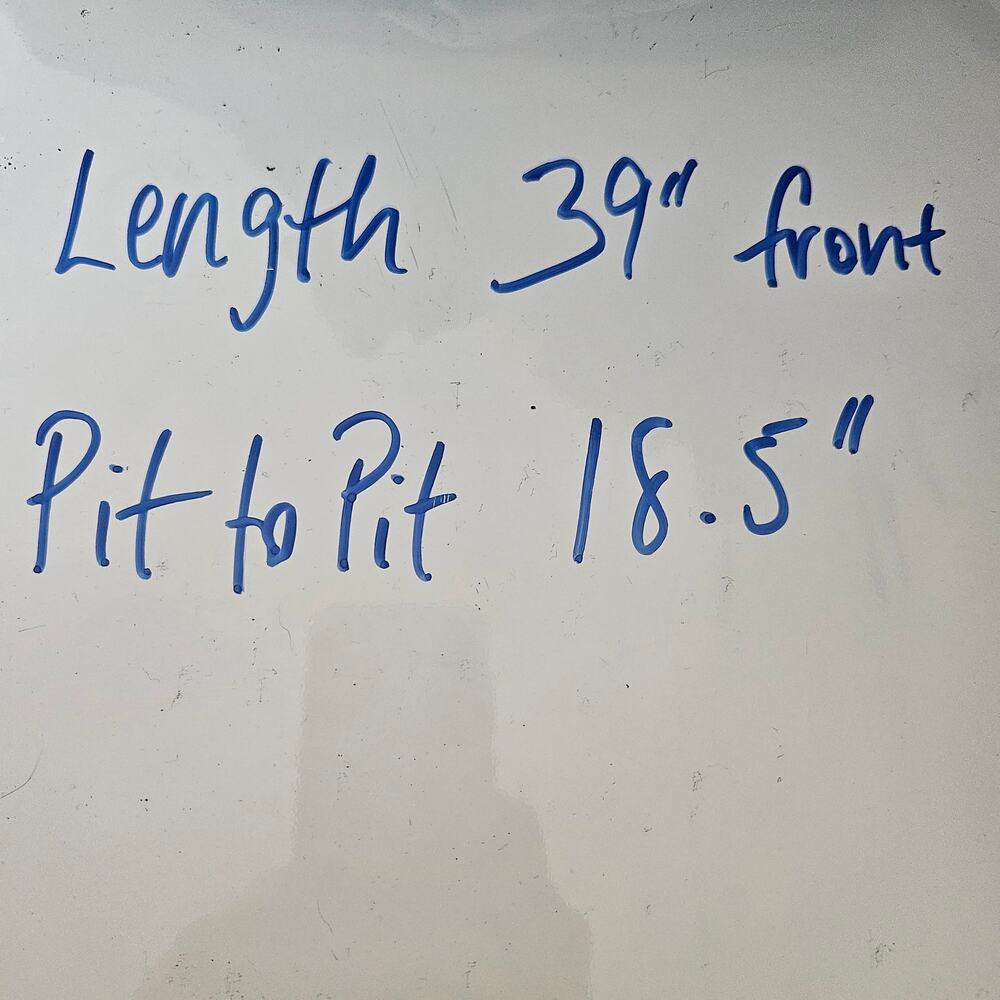 Length 39" front
Pit to Pit 18.5"